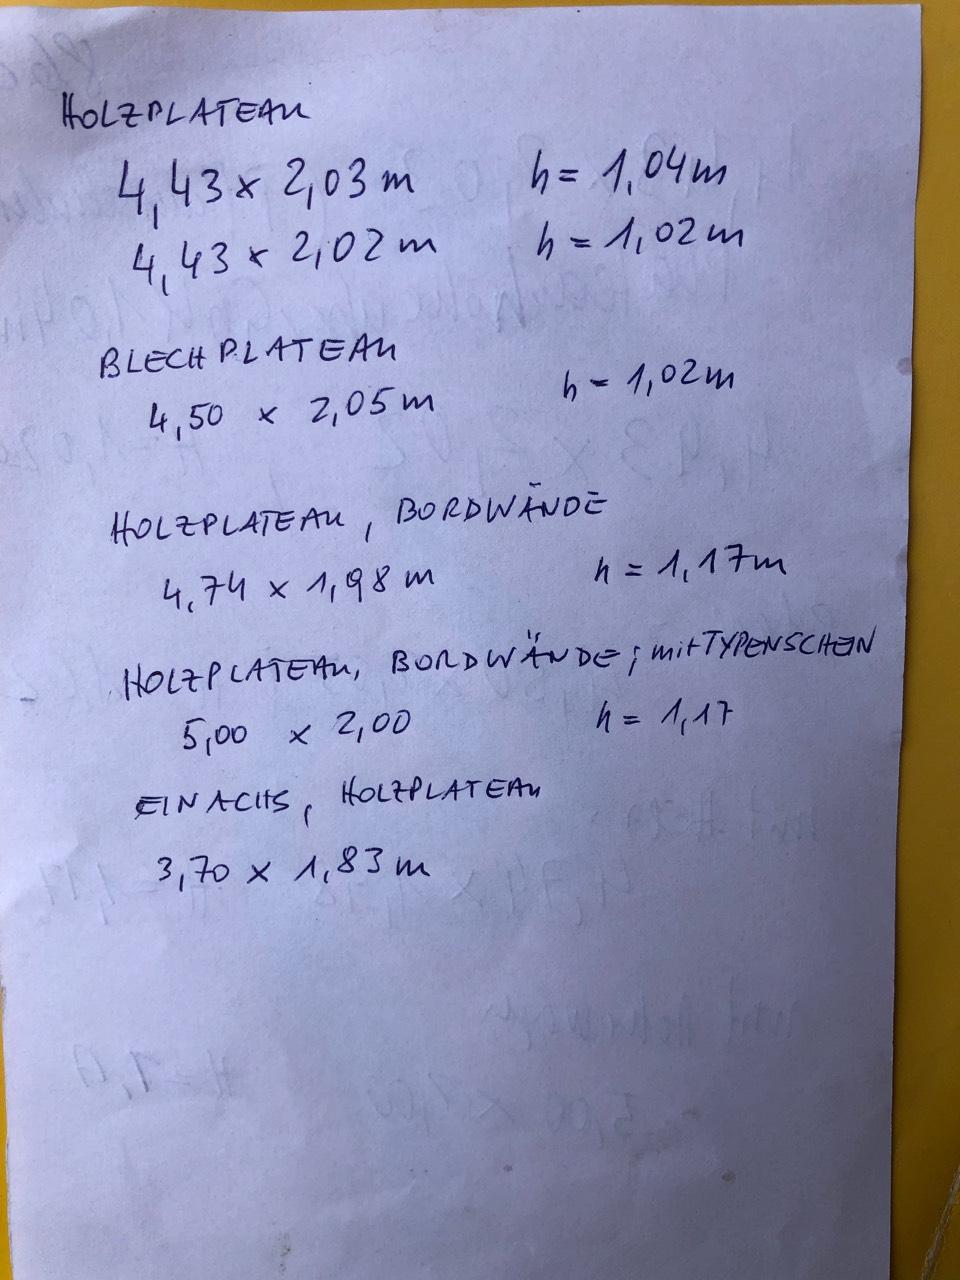 HOLZPLATEAU
4,43 x 2,03 m h = 1,04 m
4,43 x 2,02 m h = 1,02 m
BLECHPLATEAU
4,50 x 2,05 m h = 1,02 m
HOLZPLATEAU, BORDWÄNDE
4,74 x 1,98 m h = 1,17 m
HOLZPLATEAU, BORDWÄNDE; mit TYPENSCHEIN
5,00 x 2,00 h = 1,17
EINACHS, HOLZPLATEAU
3,70 x 1,83 m